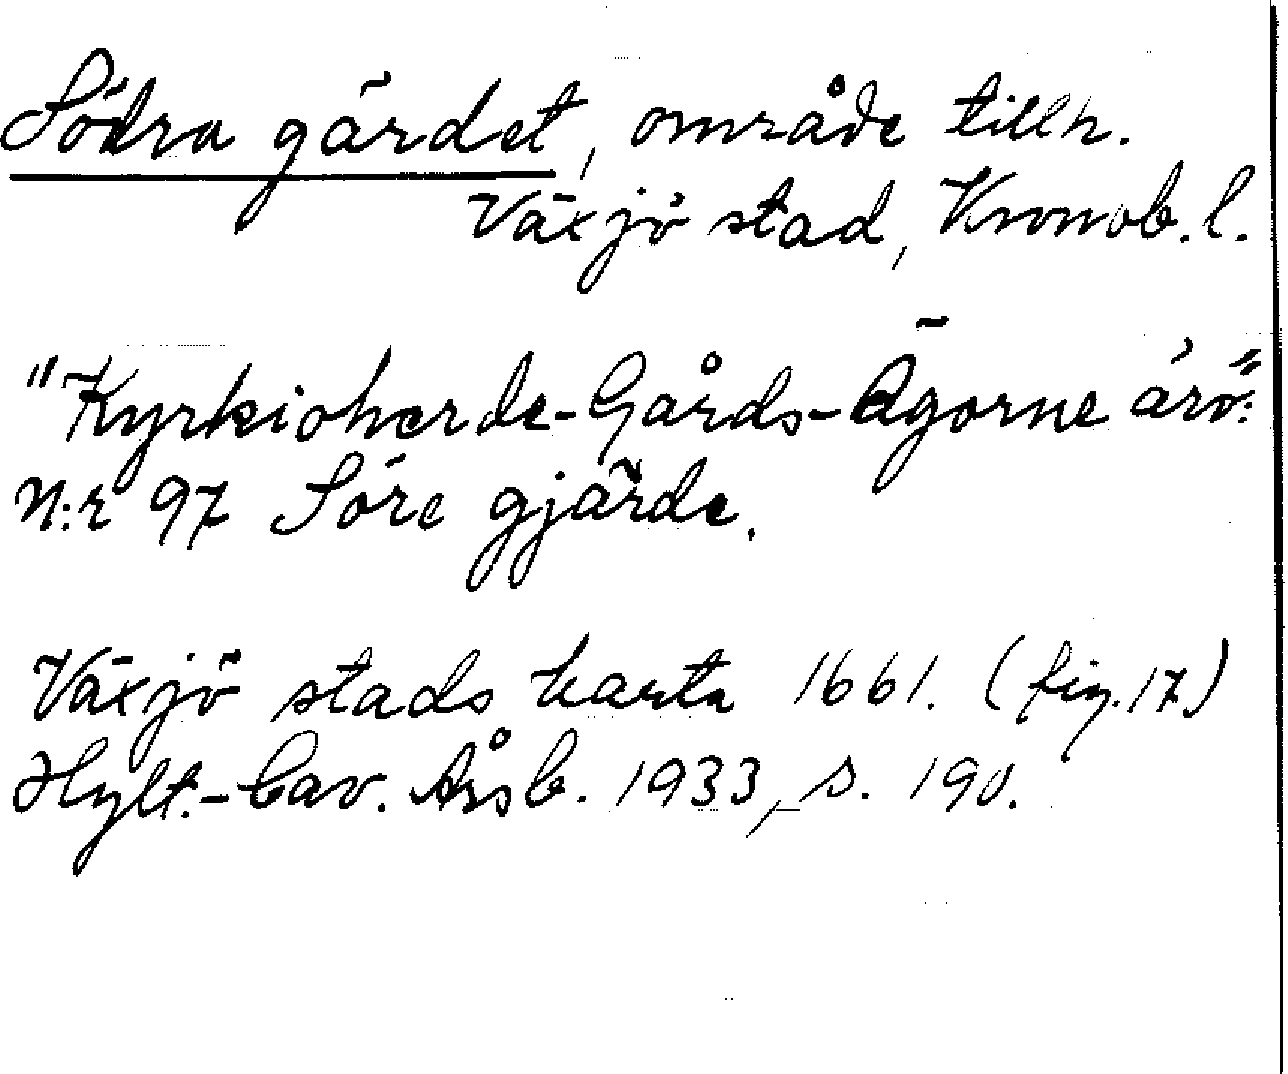 Södra gärdet, område tillh.
Växjö stad, Kronob. l.
"Kyrkioherde-Gårds-Ägorne äro:"
N:r 97 Söre gjärde.
Växjö stads karta 1661. (fig. 17)
Hylt.-Cav. Årsb. 1933, s. 190.